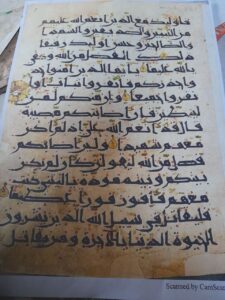 فاولئك مع الذين انعم الله عليهم
من النبيين والصديقين والشهدا
والصالحين وحسن اولئك رفيقا
ذلك الفضل من الله وكفى
بالله عليما يايها الذين امنوا
خذوا حذركم فانفروا ثبات او ا
نفروا جميعا وان منكم لمن
ليبطئن فان اصابتكم مصيبة
قال قد انعم الله علي اذ لم اكن
معهم شهيدا ولئن اصابكم
فضل من الله ليقولن كان لم تكن
بينكم وبينه مودة يليتني كنت
معهم فافوز فوزا عظيما
فليقاتل في سبيل الله الذين يشرون
الحيوة الدنيا بالاخرة ومن يقاتل
Scanned by CamScan